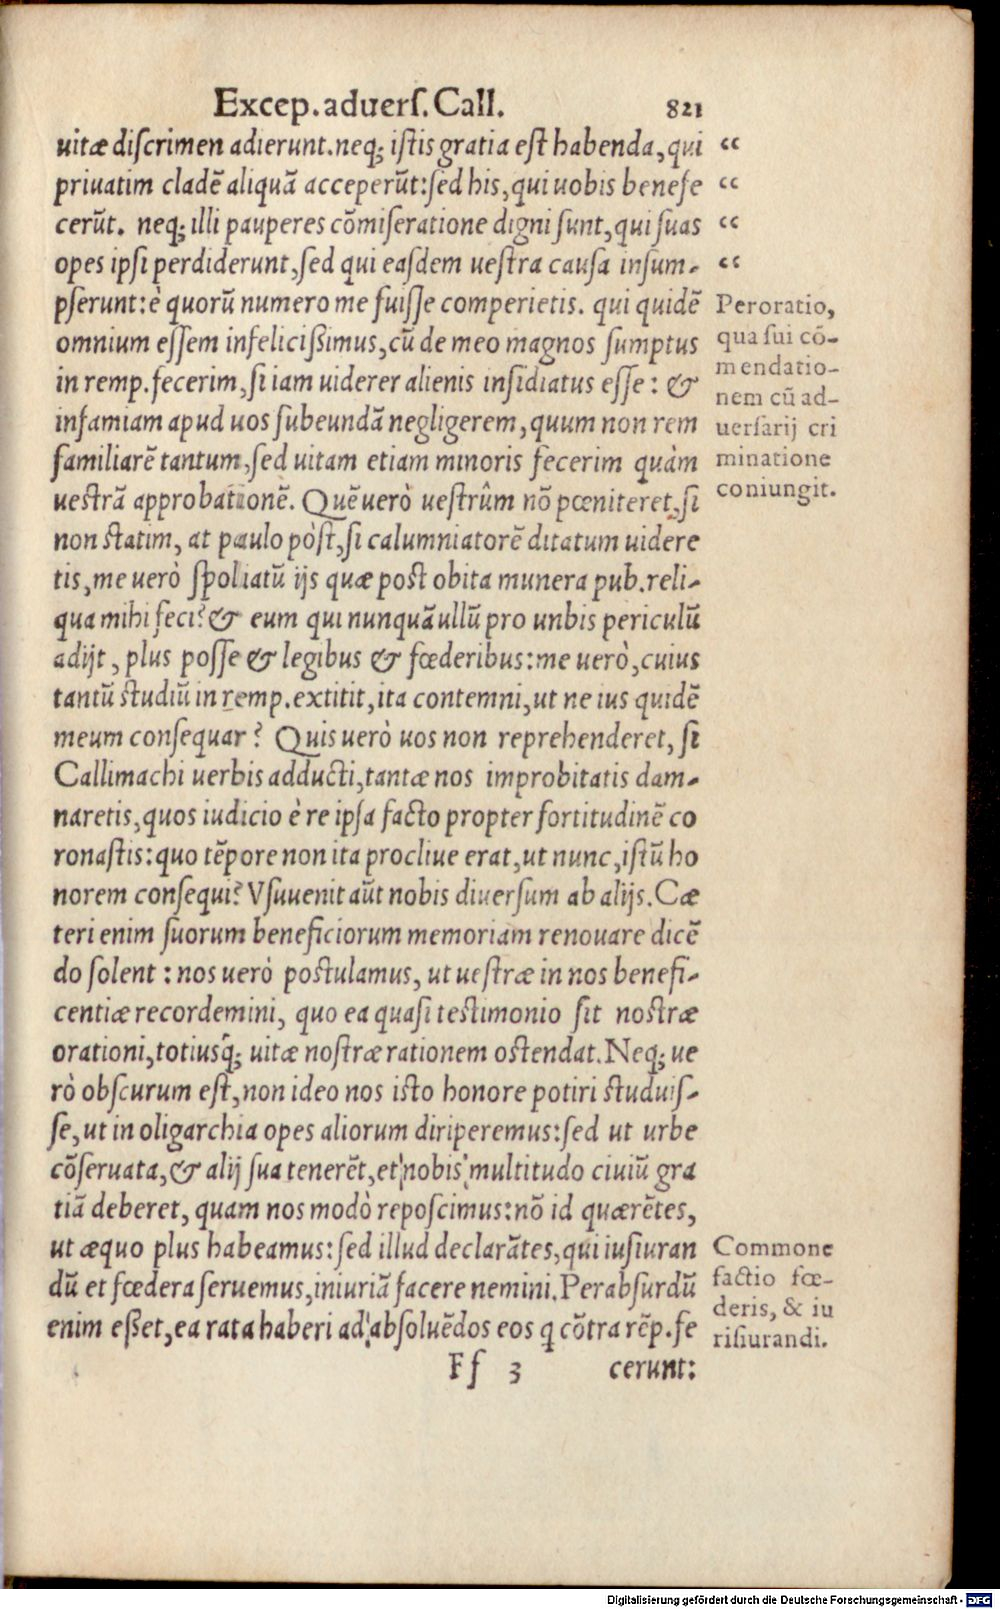 Excep. aduerſ. Call. 821
uitæ diſcrimen adierunt. neq; iſtis gratia eſt habenda, qui “
priuatim cladē aliquā acceperūt: ſed his, qui uobis benefe “
cerūt. neq; illi pauperes cōmiſeratione digni ſunt, qui ſuas “
opes ipſi perdiderunt, ſed qui eaſdem ueſtra cauſa inſum- “
pſerunt: è quorū numero me fuiſſe comperietis. qui quidē
omnium eſſem infeliciſsimus, cū de meo magnos ſumptus
in remp. fecerim, ſi iam uiderer alienis inſidiatus eſſe: &
infamiam apud uos ſubeundā negligerem, quum non rem
familiarē tantum, ſed uitam etiam minoris fecerim quàm
ueſtrā approbationē. Quē uerò ueſtrûm nō pœniteret, ſi
non ſtatim, at paulo pòſt, ſi calumniatorē ditatum uidere
tis, me uerò ſpoliatū ijs quæ poſt obita munera pub. reli-
qua mihi feci? & eum qui nunquā ullū pro unbis periculū
adijt, plus poſſe & legibus & fœderibus: me uerò, cuius
tantū ſtudiū in remp. extitit, ita contemni, ut ne ius quidē
meum conſequar? Quis uerò uos non reprehenderet, ſi
Callimachi uerbis adducti, tantæ nos improbitatis dam-
naretis, quos iudicio è re ipſa facto propter fortitudinē co
ronaſtis: quo tēpore non ita procliue erat, ut nunc, iſtū ho
norem conſequi? Vſuuenit aūt nobis diuerſum ab alijs. Cæ
teri enim ſuorum beneficiorum memoriam renouare dicē
do ſolent: nos uerò poſtulamus, ut ueſtræ in nos benefi-
centiæ recordemini, quo ea quaſi teſtimonio ſit noſtræ
orationi, totiusq̃; uitæ noſtræ rationem oſtendat. Neq; ue
rò obſcurum eſt, non ideo nos iſto honore potiri ſtuduiſ-
ſe, ut in oligarchia opes aliorum diriperemus: ſed ut urbe
cōſeruata, & alij ſua tenerēt, et nobis multitudo ciuiū gra
tiā deberet, quam nos modò repoſcimus: nō id quærētes,
ut æquo plus habeamus: ſed illud declarātes, qui iuſiuran
dū et fœdera ſeruemus, iniuriā facere nemini. Perabſurdū
enim eſſet, ea rata haberi ad abſoluēdos eos q cōtra rēp. fe
Ff 3 cerunt:
Peroratio,
qua ſui cō-
mendatio-
nem cū ad-
uerſarij cri
minatione
coniungit.
Commone
factio fœ-
deris, & iu
riſiurandi.
Digitalisierung gefördert durch die Deutsche Forschungsgemeinschaft - DFG